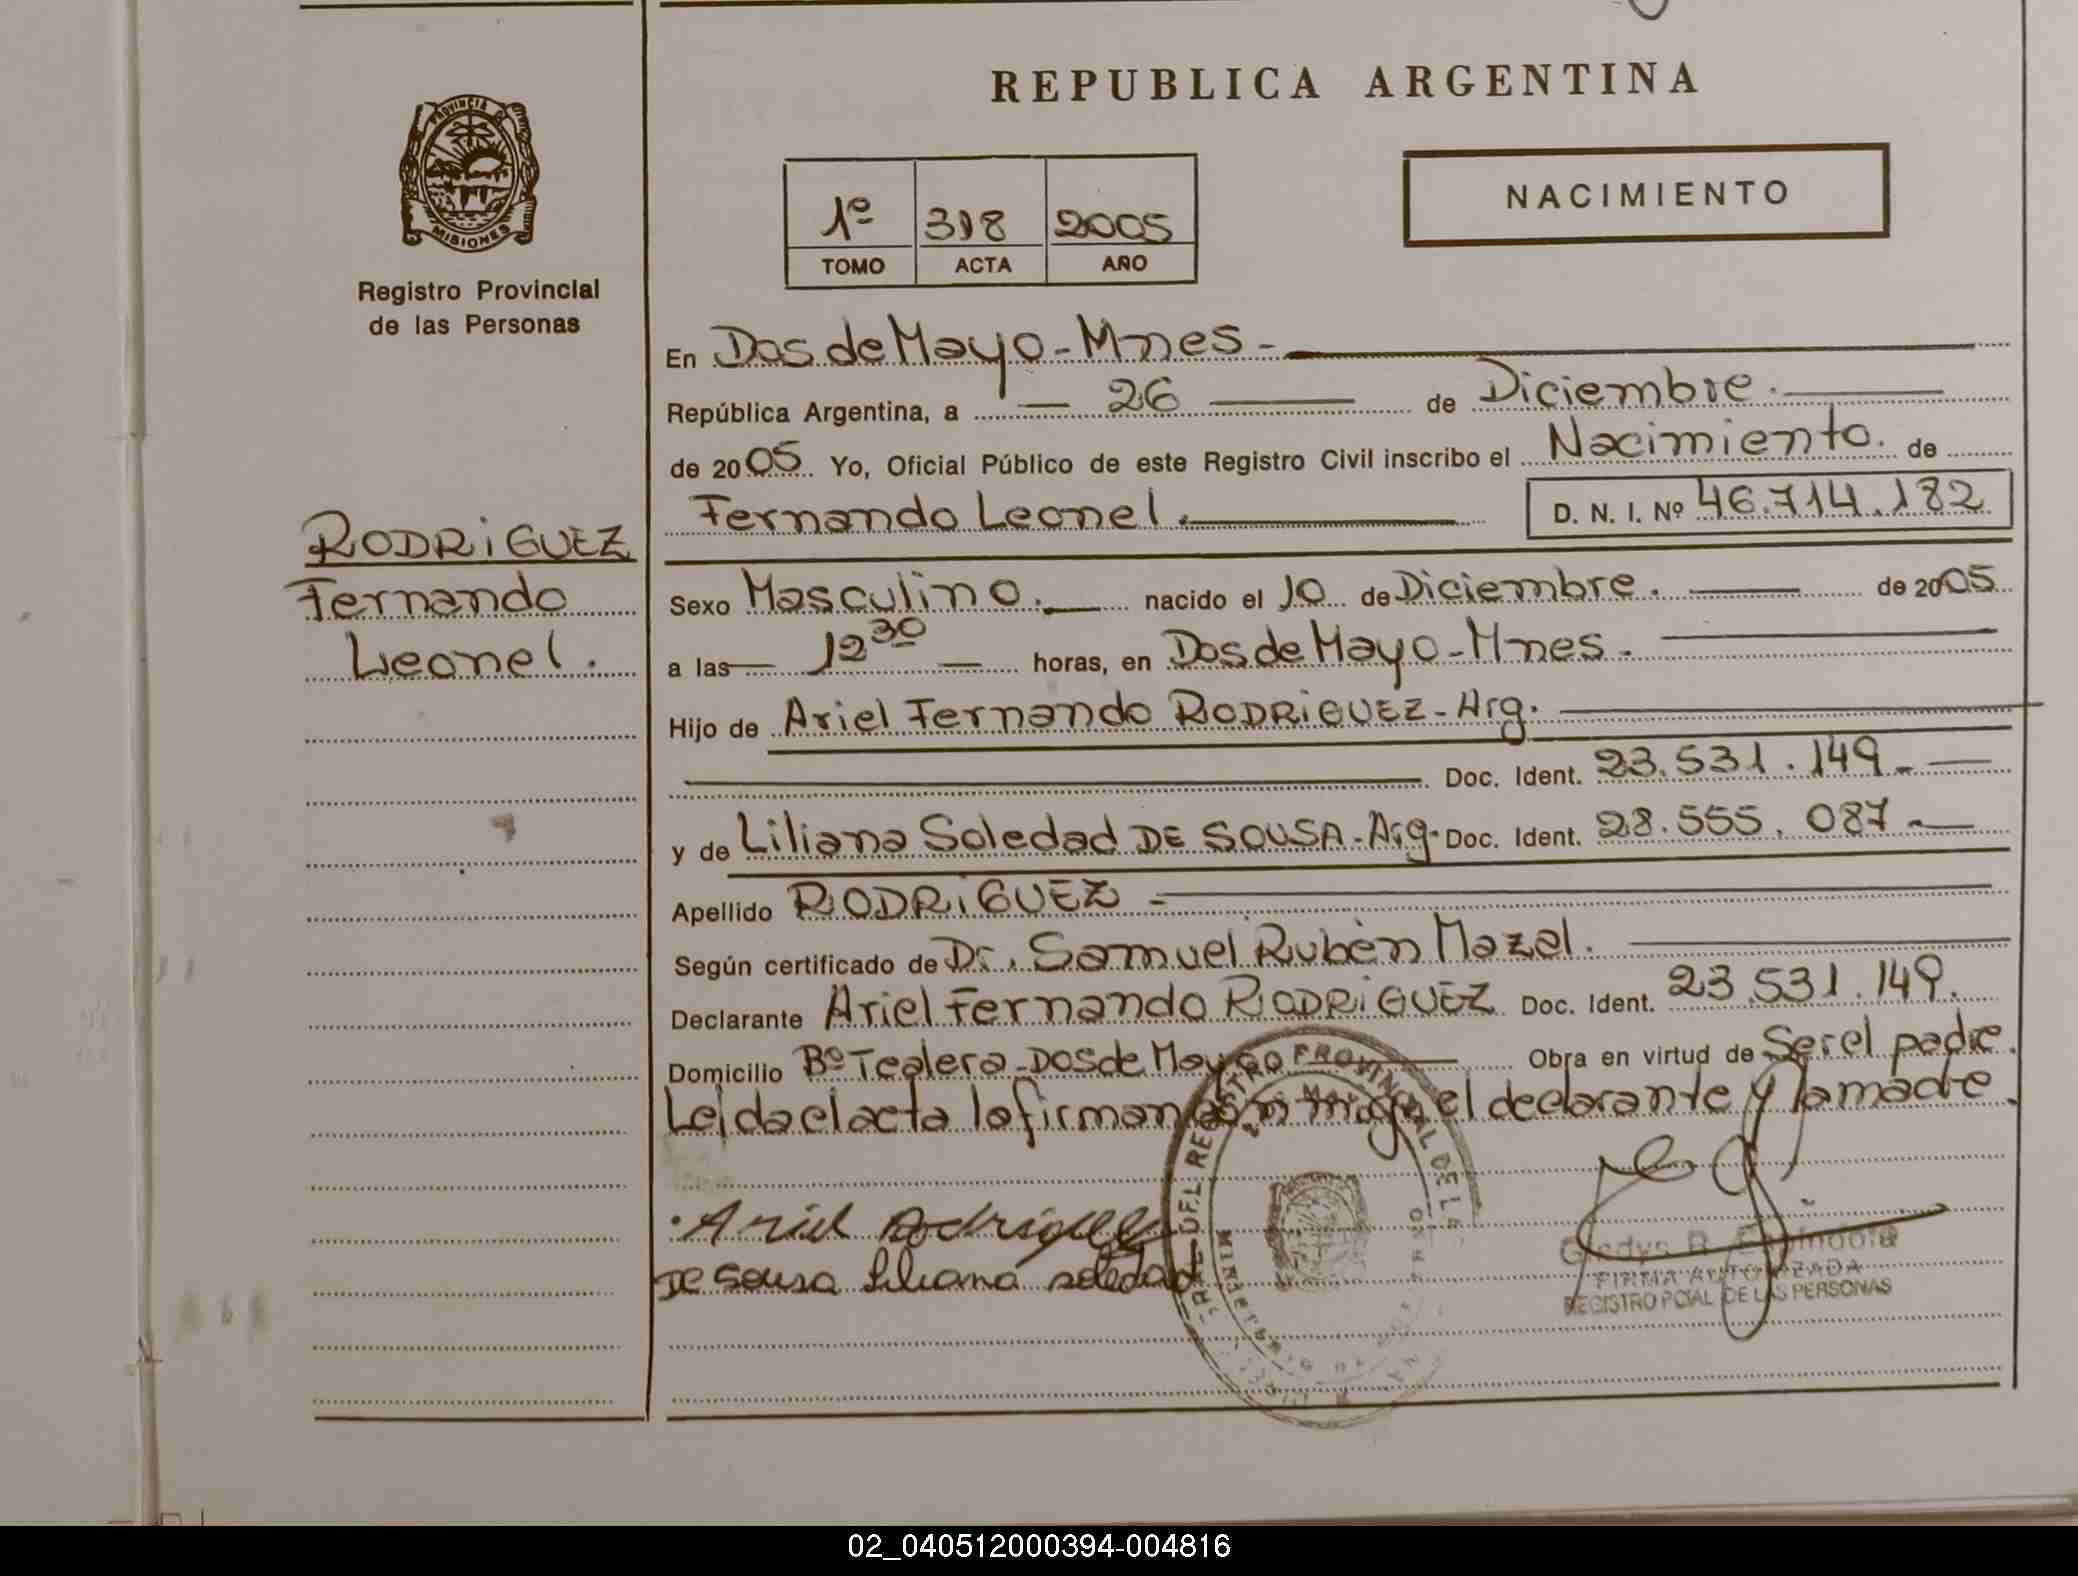 REPUBLICA ARGENTINA
NACIMIENTO
1º 318 2005
TOMO ACTA AÑO
PROVINCIA
MISIONES
Registro Provincial
de las Personas
RODRIGUEZ
Fernando
Leonel.
En Dos de Mayo - Mnes -
República Argentina, a — 26 — de Diciembre.
de 2005. Yo, Oficial Público de este Registro Civil inscribo el Nacimiento. de
Fernando Leonel. D. N. I. Nº 46.714.182
Sexo Masculino. nacido el 10 de Diciembre. de 2005
a las — 12 30 — horas, en Dos de Mayo - Mnes.
Hijo de Ariel Fernando RODRIGUEZ - Arg.
Doc. Ident. 23.531.149.
y de Liliana Soledad DE SOUSA - Arg. Doc. Ident. 28.555.087.
Apellido RODRIGUEZ
Según certificado de Dr. Samuel Rubén Mazal.
Declarante Ariel Fernando RODRIGUEZ Doc. Ident. 23.531.149.
Domicilio Bº Tealera - Dos de Mayo Obra en virtud de Ser el padre.
Leida el acta la firman el declarante y la madre.
Ariel Rodriguez
De Sousa Liliana Soledad
Gladys R.
FIRMA AUTORIZADA
REGISTRO PCIAL DE LAS PERSONAS
02_040512000394-004816